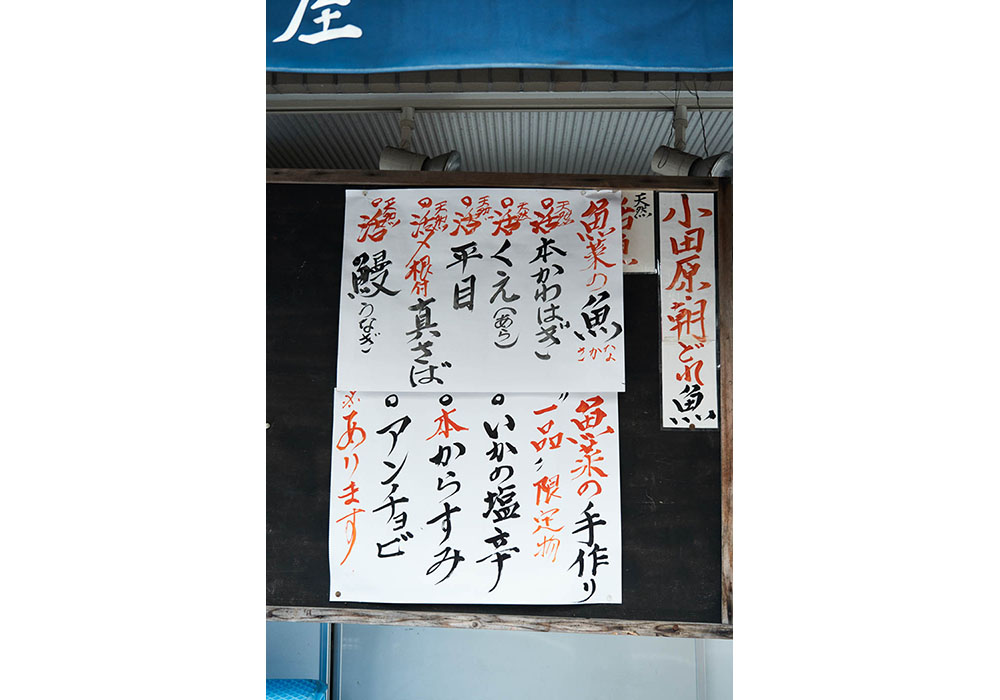 小田原・朝どれ魚
天然
魚菜の魚
さかな
天然
活本かわはぎ
天然
活くえ(あら)
天然
活平目
天然
活〆根付真さば
天然
活鰻うなぎ
魚菜の手作り
"一品"限定物
いかの塩辛
本からすみ
アンチョビ
※あります